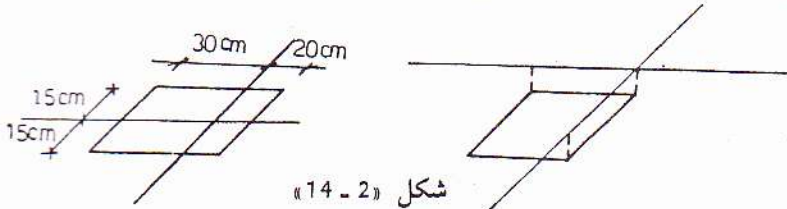 30cm 20cm
15cm
15cm
شكل «2 - 14»